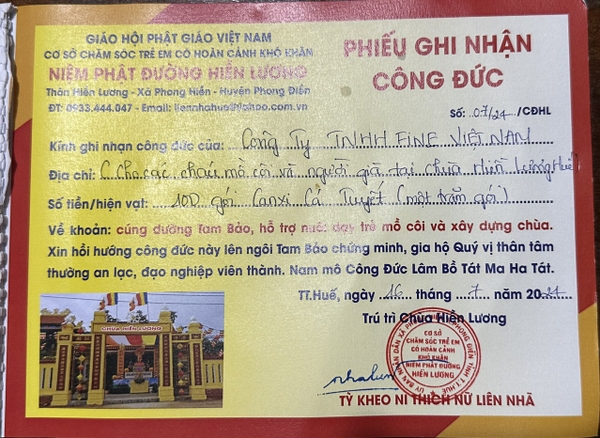 GIÁO HỘI PHẬT GIÁO VIỆT NAM
CƠ SỞ CHĂM SÓC TRẺ EM CÓ HOÀN CẢNH KHÓ KHĂN
NIỆM PHẬT ĐƯỜNG HIỀN LƯƠNG
Thôn Hiền Lương - Xã Phong Hiền - Huyện Phong Điền
ĐT: 0933.444.047 - Email: liennhahue@yahoo.com.vn
PHIẾU GHI NHẬN
CÔNG ĐỨC
Số: 07/24/CĐHL
Kính ghi nhận công đức của: Công Ty TNHH FINE VIỆT NAM
Địa chỉ: (Cho các cháu mồ côi và người già tại chùa Hiền Lương Huế
Số tiền/hiện vật: 100 gói Canxi Cá Tuyết (một trăm gói)
Về khoản: cúng dường Tam Bảo, hỗ trợ nuôi dạy trẻ mồ côi và xây dựng chùa.
Xin hồi hướng công đức này lên ngôi Tam Bảo chứng minh, gia hộ Quý vị thân tâm
thường an lạc, đạo nghiệp viên thành. Nam mô Công Đức Lâm Bồ Tát Ma Ha Tát.
TT.Huế, ngày 16 tháng 7 năm 2024
Trú trì Chùa Hiền Lương
CHÙA HIỀN LƯƠNG
CƠ SỞ
CHĂM SÓC TRẺ EM
CÓ HOÀN CẢNH
KHÓ KHĂN
NIỆM PHẬT ĐƯỜNG
HIỀN LƯƠNG
TỲ KHEO NI THÍCH NỮ LIÊN NHÃ